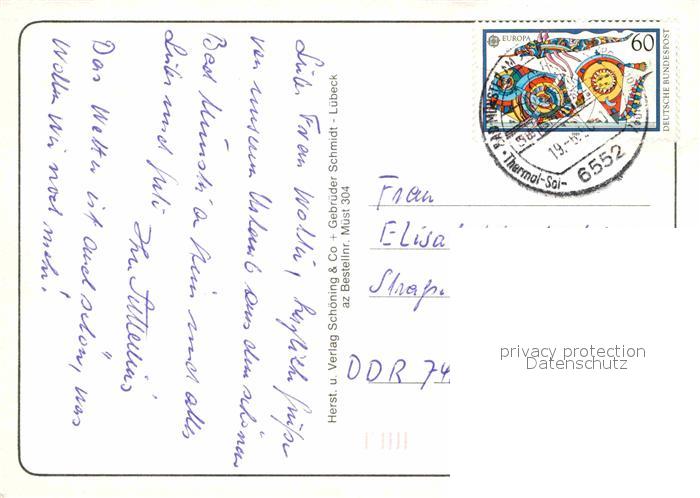 Liebe Frau Wolter, herzliche Grüße
von unserem Urlaub aus dem schönen
Bad Münster a Stein und alles
Liebe und Gute Ihre
Das Wetter ist auch schön, was
wollen wir noch mehr!
Herst. u. Verlag Schöning & Co + Gebrüder Schmidt - Lübeck
az Bestellnr. Müst 304
EUROPA
60
DEUTSCHE BUNDESPOST
19.-
6552
Thermal-Sol-
Frau
Elisa
Straße
DDR 74
privacy protection
Datenschutz